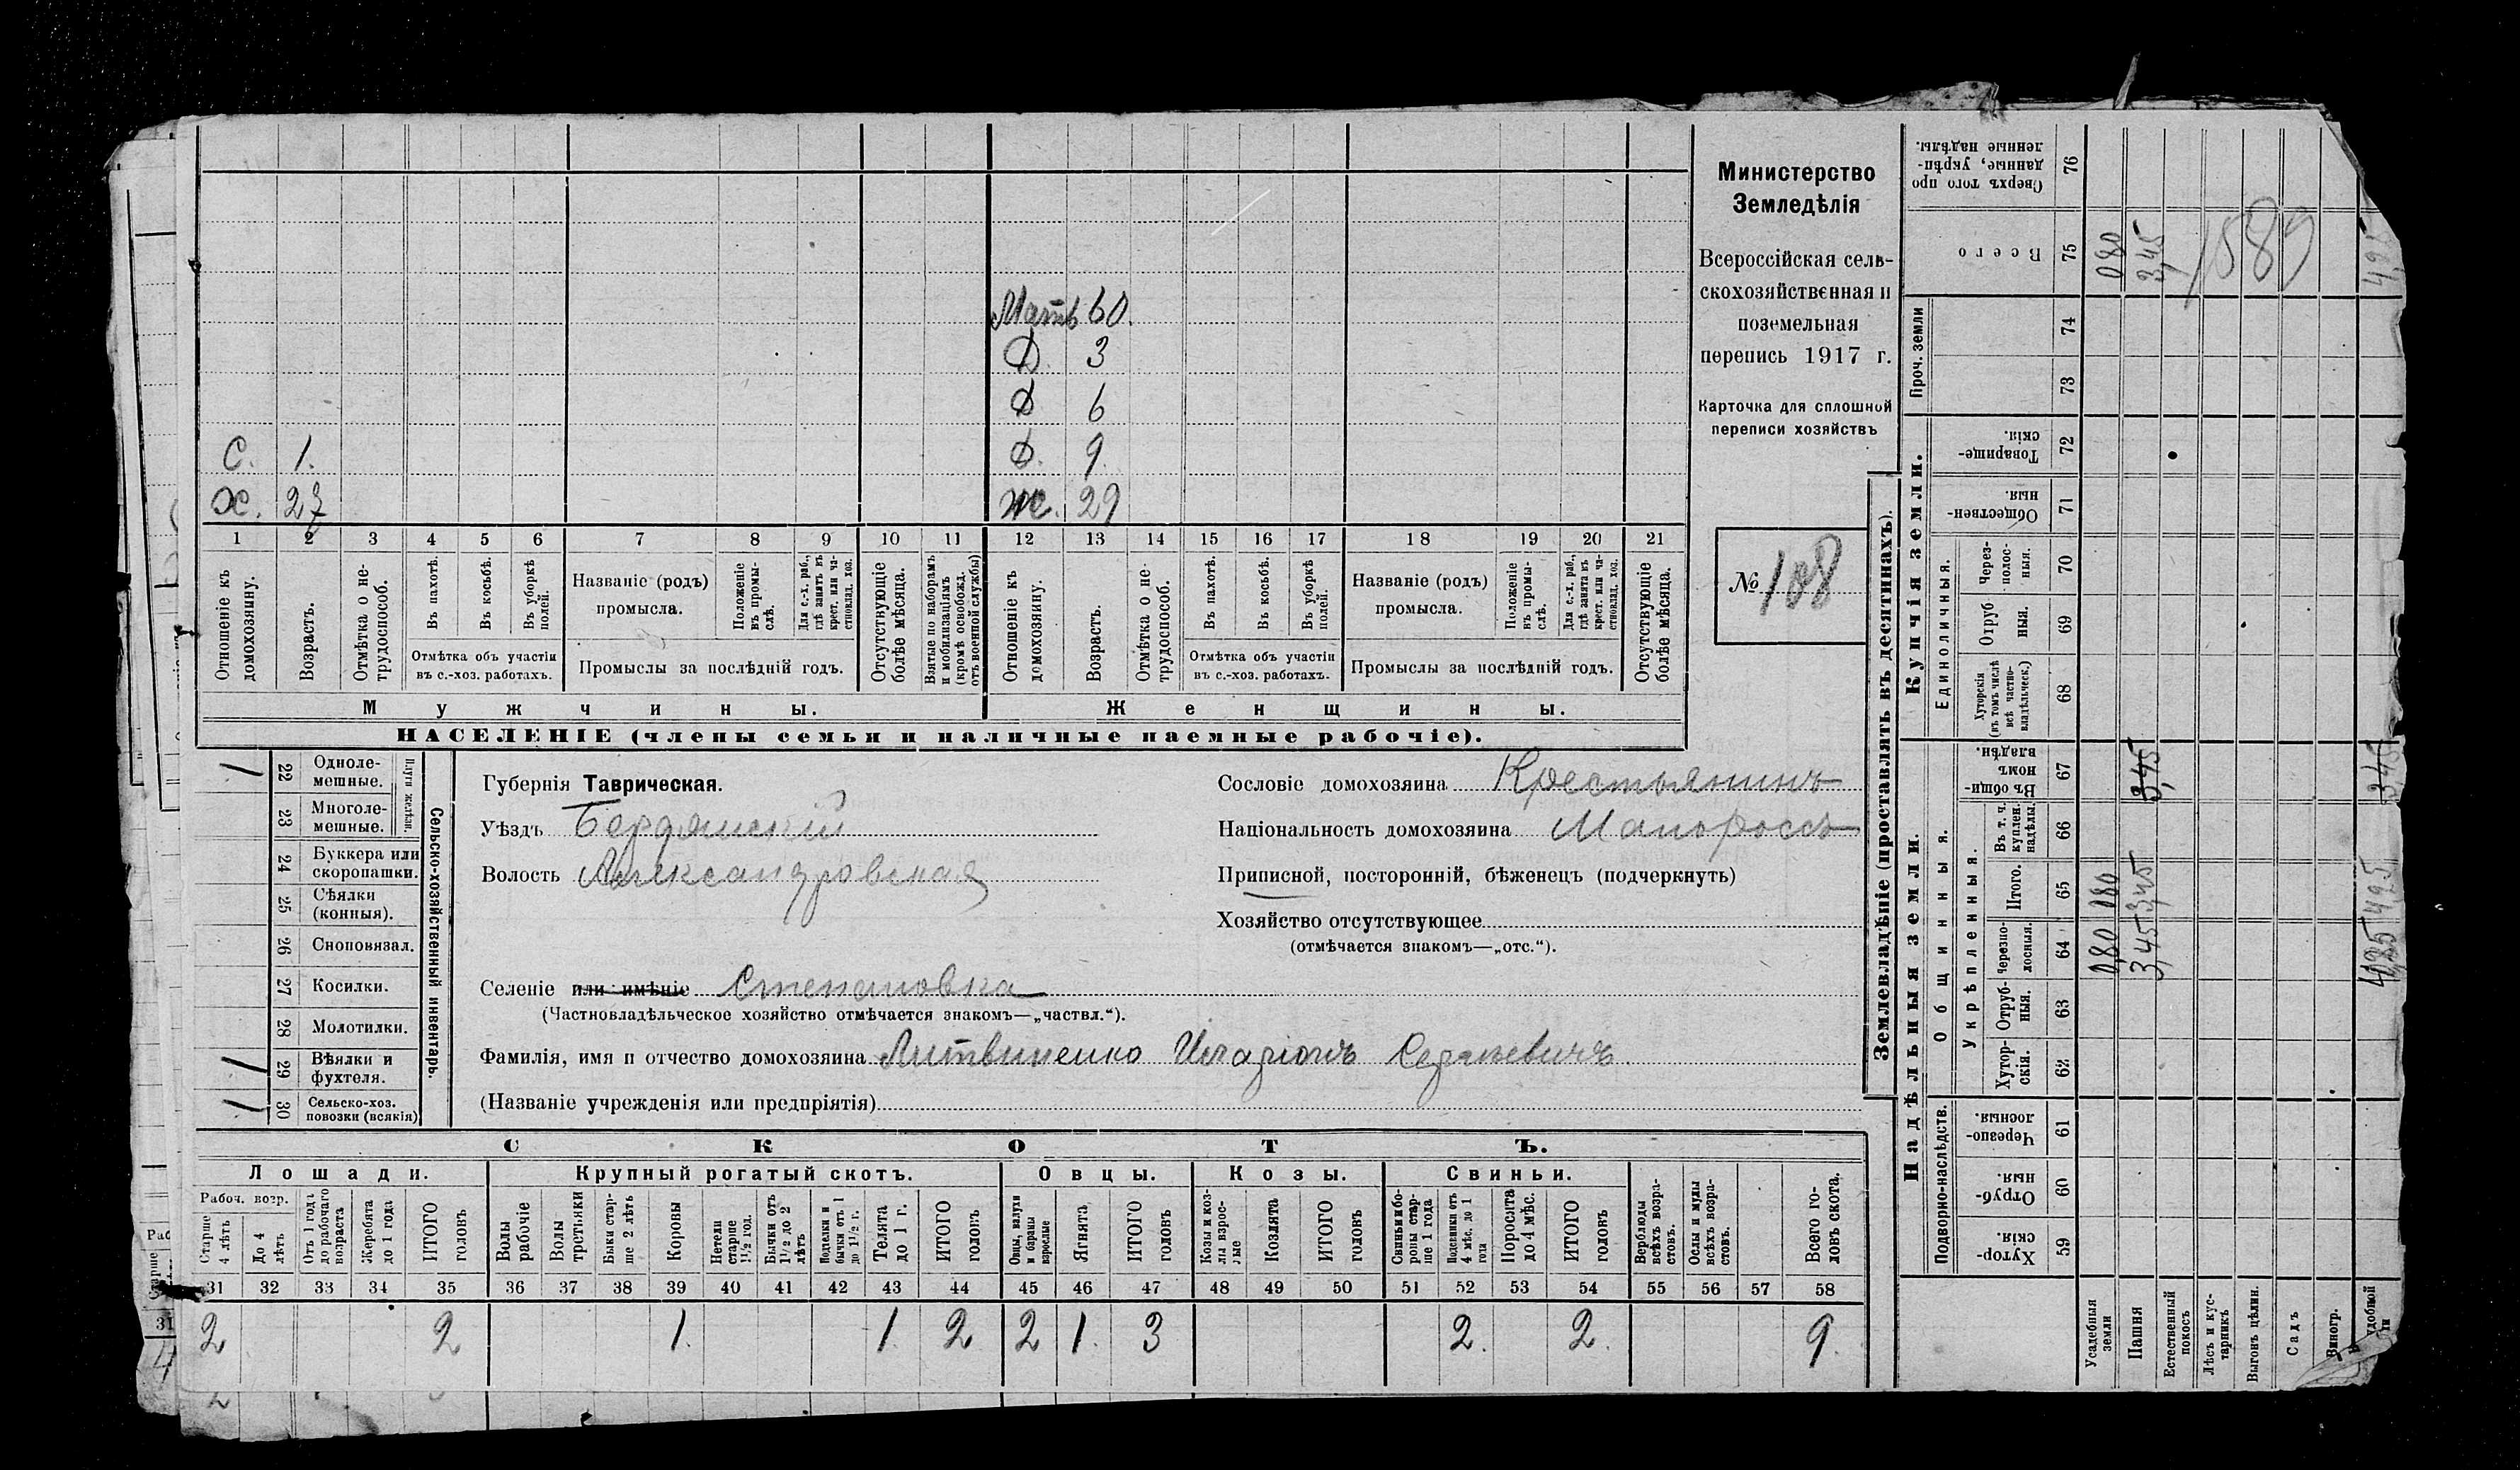 Мать 60.
Д. 3
Д 6
С. 1. Д. 9
Х. 27 Ж. 29
1 2 3 4 5 6 7 8 9 10 11 12 13 14 15 16 17 18 19 20 21
Отношеніе къ домохозяину.
Возрастъ.
Отмѣтка о не-трудоспособ.
Въ пахотѣ.
Въ косьбѣ.
Въ уборкѣ полей.
Отмѣтка объ участіи
въ с.-хоз. работахъ.
Названіе (родъ)
промысла.
Положеніе въ промы-слѣ.
Для с.-х. раб., гдѣ занятъ въ крест. или ча-стновлад. хоз.
Промыслы за послѣдній годъ.
Отсутствующіе болѣе мѣсяца.
Взятые по наборамъ и мобилизаціямъ (кромѣ освобожд. отъ военной службы)
Отношеніе къ домохозяину.
Возрастъ.
Отмѣтка о не-трудоспособ.
Въ пахотѣ.
Въ косьбѣ.
Въ уборкѣ полей.
Отмѣтка объ участіи
въ с.-хоз. работахъ.
Названіе (родъ)
промысла.
Положеніе въ промы-слѣ.
Для с.-х. раб., гдѣ занята въ крест. или ча-стновлад. хоз.
Промыслы за послѣдній годъ.
Отсутствующіе болѣе мѣсяца.
Мужчины. Женщины.
НАСЕЛЕНІЕ (члены семьи и наличные наемные рабочіе).
Министерство
Земледѣлія
Всероссійская сель-
скохозяйственная и
поземельная
перепись 1917 г.
Карточка для сплошной
переписи хозяйствъ
№ 108
Сельско-хозяйственный инвентарь.
Плуги желѣзн.
1 22 Одноле-мешные.
23 Многоле-мешные.
24 Буккера или скоропашки.
25 Сѣялки (конныя).
26 Сноповязал.
27 Косилки.
28 Молотилки.
1 29 Вѣялки и фухтеля.
1 30 Сельско-хоз. повозки (всякія)
Губернія Таврическая.
Уѣздъ Бердянскій
Волость Александровская
Сословіе домохозяина Крестьянинъ
Національность домохозяина Малороссъ
Приписной, посторонній, бѣженецъ (подчеркнуть)
Хозяйство отсутствующее
(отмѣчается знакомъ—„отс.“).
Селеніе или имѣніе Степановка
(Частновладѣльческое хозяйство отмѣчается знакомъ—„частвл.“).
Фамилія, имя и отчество домохозяина Литвиненко Иларіонъ
(Названіе учрежденія или предпріятія)
СКОТЪ.
Лошади. Крупный рогатый скотъ. Овцы. Козы. Свиньи.
Рабоч. возр.
Старше 4 лѣтъ
До 4 лѣтъ
Отъ 1 года до рабочаго возраста
Жеребята до 1 года
ИТОГО головъ
Волы рабочіе
Волы третьяки
Быки стар-ше 2 лѣтъ
Коровы
Нетели старше 1½ год.
Бычки отъ 1½ до 2 лѣтъ
Подтелки и бычки отъ 1 до 1½ г.
Телята до 1 г.
ИТОГО головъ
Овцы, валухи и бараны взрослые
Ягнята
ИТОГО головъ
Козы и коз-лы взрос-лые
Козлята
ИТОГО головъ
Свиньи и бо-ровы стар-ше 1 года
Подсвинки отъ 4 мѣс. до 1 года
Поросята до 4 мѣс.
ИТОГО головъ
Верблюды всѣхъ возра-стовъ.
Ослы и мулы всѣхъ возра-стовъ.
Всего го-ловъ скота.
31 32 33 34 35 36 37 38 39 40 41 42 43 44 45 46 47 48 49 50 51 52 53 54 55 56 57 58
2 2 1. 1. 2 2 1. 3 2. 2. 9.
Землевладѣніе (проставлять въ десятинахъ).
Купчія земли.
Надѣльныя земли.
Сверхъ того про данные, укрѣп-ленные надѣлы. 76
Всего 75 0,80 3,45 1589 4,25
Проч. земли
74
73
Товарище-скія. 72
Обществен-ныя. 71
Единоличныя.
Через-полос-ныя. 70
Отруб ныя. 69
Хуторскія (въ томъ числѣ всѣ частно-владѣльческ.) 68
Общинныя.
Въ общи-номъ владѣн. 67 3,45 3,45
Укрѣпленныя.
Въ т. ч. куплен. надѣлы. 66
Итого. 65 0,80 3,45 4,25
Черезпо-лосныя. 64 0,80 3,45 4,25
Отруб-ныя. 63
Хутор-скія. 62
Подворно-наслѣдств.
Черезпо-лосныя. 61
Отруб-ныя. 60
Хутор-скія. 59
Усадебныя земли
Пашня
Естественный покосъ
Лѣсъ и кус-тарникъ
Выгонъ цѣлин.
Садъ
Виногр.
удобной